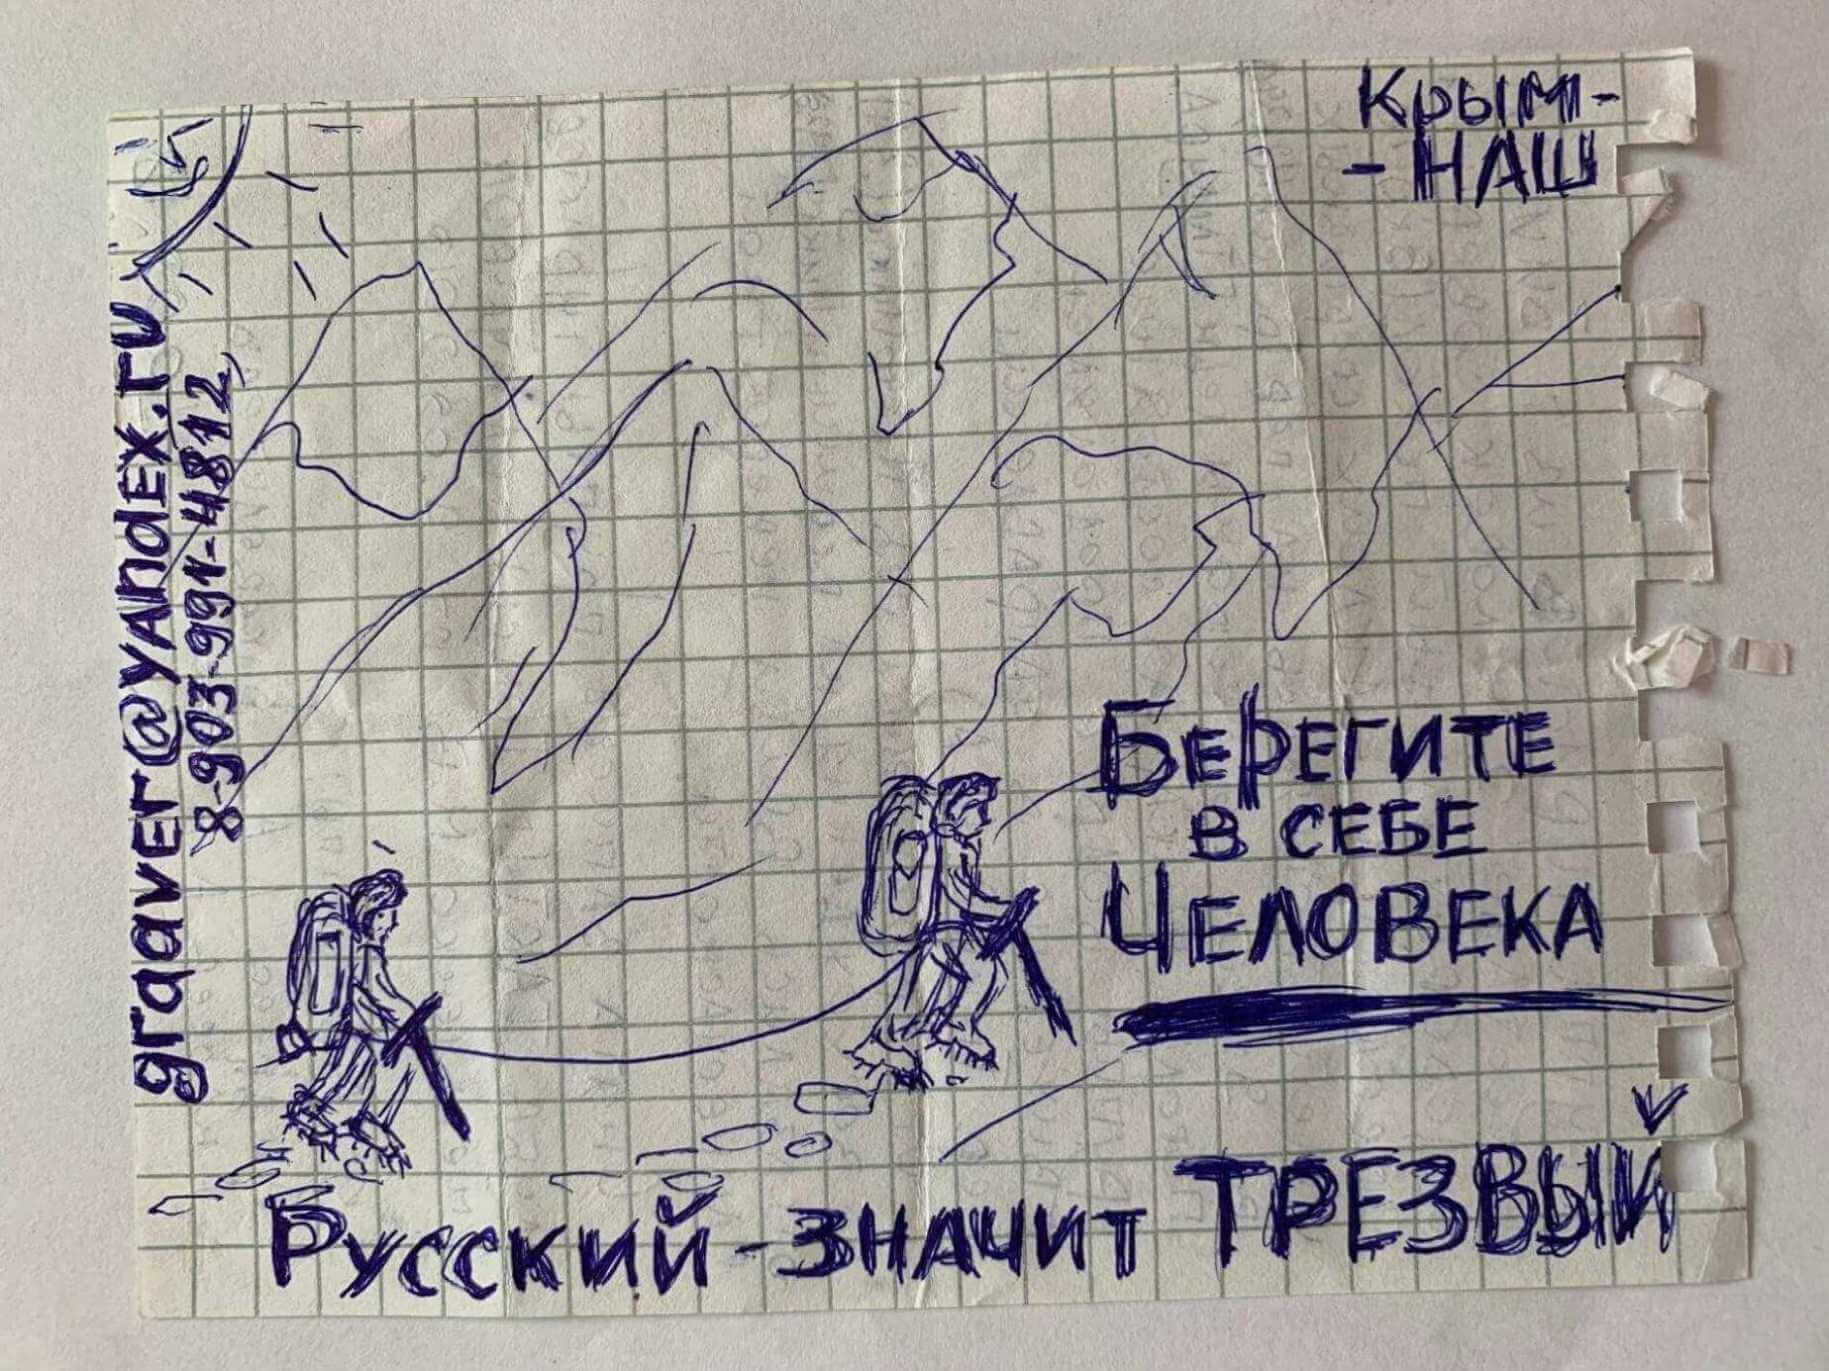 Крым-
-НАШ
graaver@yandex.ru
8-903-991-4812
Берегите
в себе
Человека
Русский-значит ТРЕЗВЫЙ